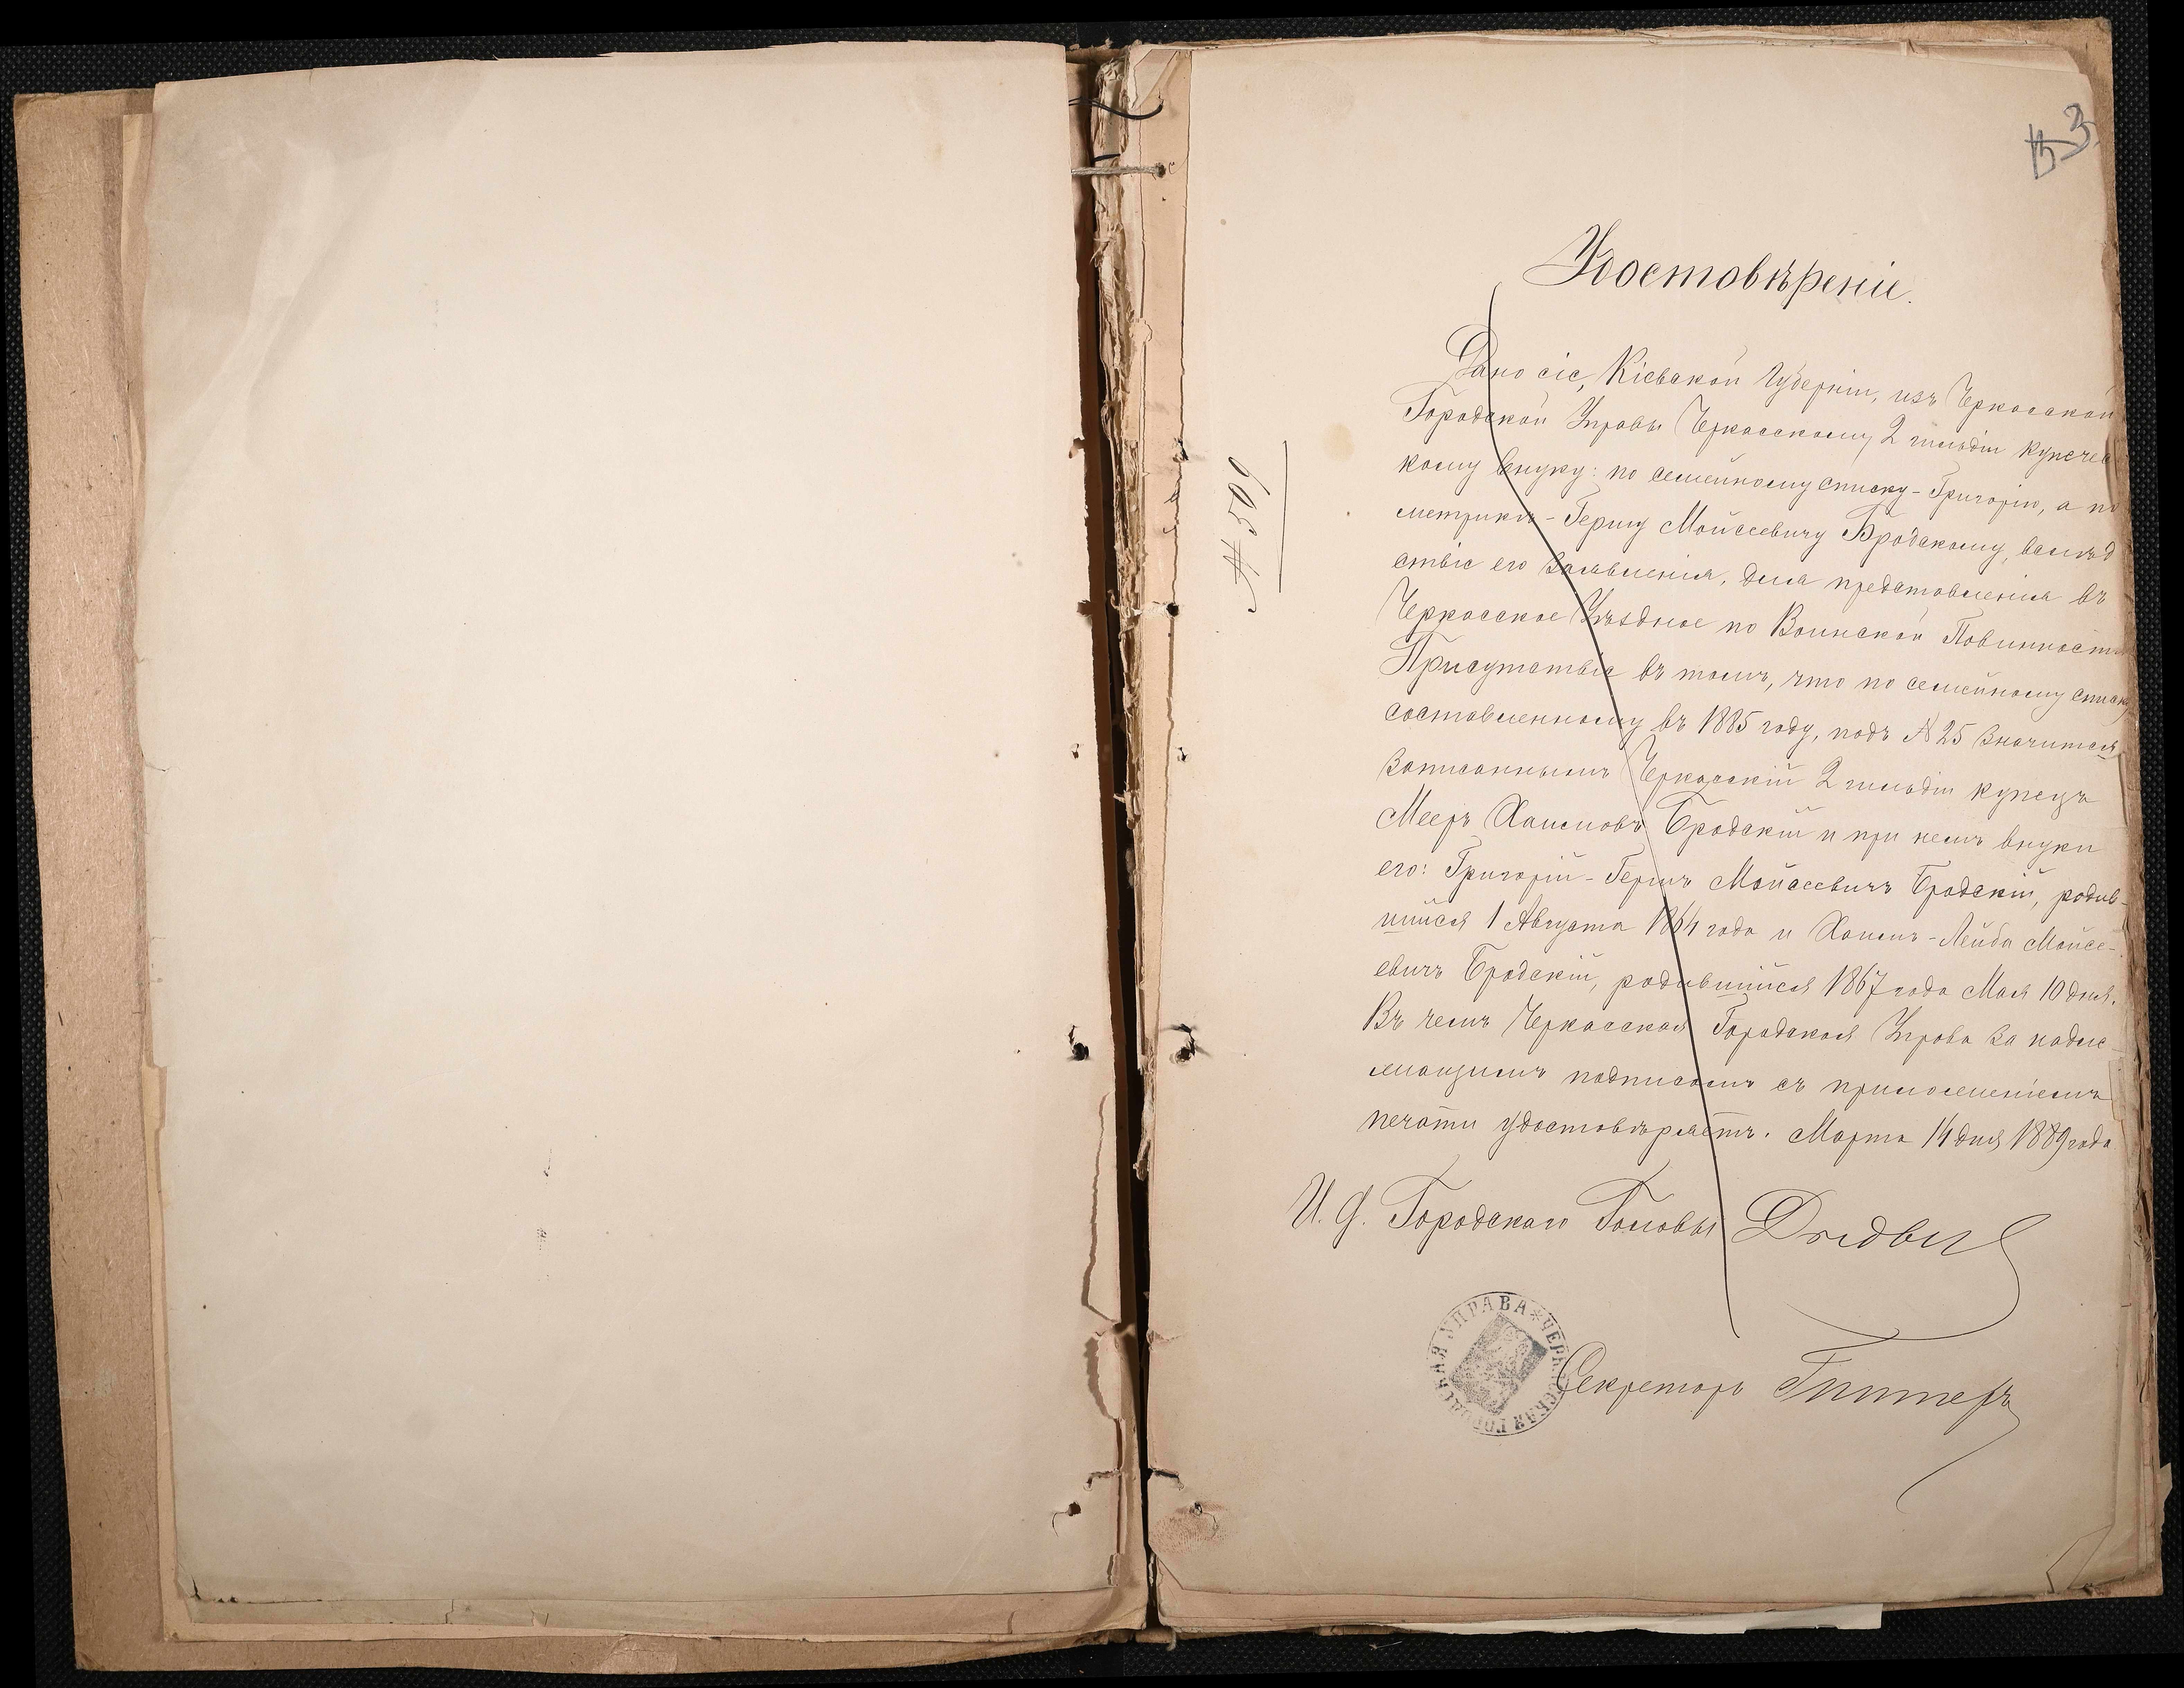 53
Удостовѣреніе.
№ 509
Дано сіе, Кіевской Губерніи, изъ Черкасской
Городской Управы Черкасскому 2 гильдіи купечес
кому внуку: по семейному списку - Григорію, а по
метрикѣ - Гершу Мойсеевичу Бродскому, вслѣд
ствіе его заявленія, для представленія въ
Черкасское Уѣздное по Воинской Повинности
Присутствіе въ томъ, что по семейному списку
составленному въ 1885 году, подъ № 25 значится
записаннымъ Черкасскій 2 гильдіи купецъ
Мееръ Хаимовъ Бродскій и при немъ внуки
его: Григорій - Гершъ Мойсеевичъ Бродскій, родив-
шийся 1 Августа 1864 года и Хаимъ - Лейба Мойсе-
евичъ Бродскій, родившийся 1867 года Мая 10 дня.
Въ чемъ Черкасская Городская Управа за надле-
жащимъ подписомъ съ приложеніемъ
печати удостовѣряетъ. Марта 14 дня 1889 года
И. д. Городскаго Головы
ЧЕРКАССКАЯ ГОРОДСКАЯ УПРАВА
Секретарь